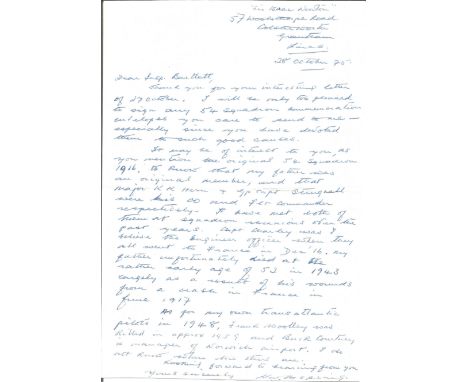 "Sir Isaac Newton"
57 Woolsthorpe Road
Grantham
Lincs.
28 October 75
Dear Insp. Bartlett,
Thank you for your interesting letter
of 27 October. I will be only too pleased
to sign any 54 Squadron commemorative
envelopes you care to send to me —
especially since you have devoted
them to such good causes.
It may be of interest to you, as
you mention the original 54 Squadron
1916, to know that my father was
an original member, and that
Major K.K. Horn &
were his CO and Flt Commander
respectively. I have met both of
them at squadron reunions over the
past years. Capt was I
believe the Engineer Officer when they
all went to France in Dec 16. My
father unfortunately died at the
rather early age of 53 in 1943
largely as a result of his wounds
from a crash in France in
June 1917
As for my own transatlantic
pilots in 1948, Frank Woolley was
killed in approx 1959 and
a manager of Norwich airport. I do
not know where the others are.
Looking forward to hearing from you
Yours sincerely